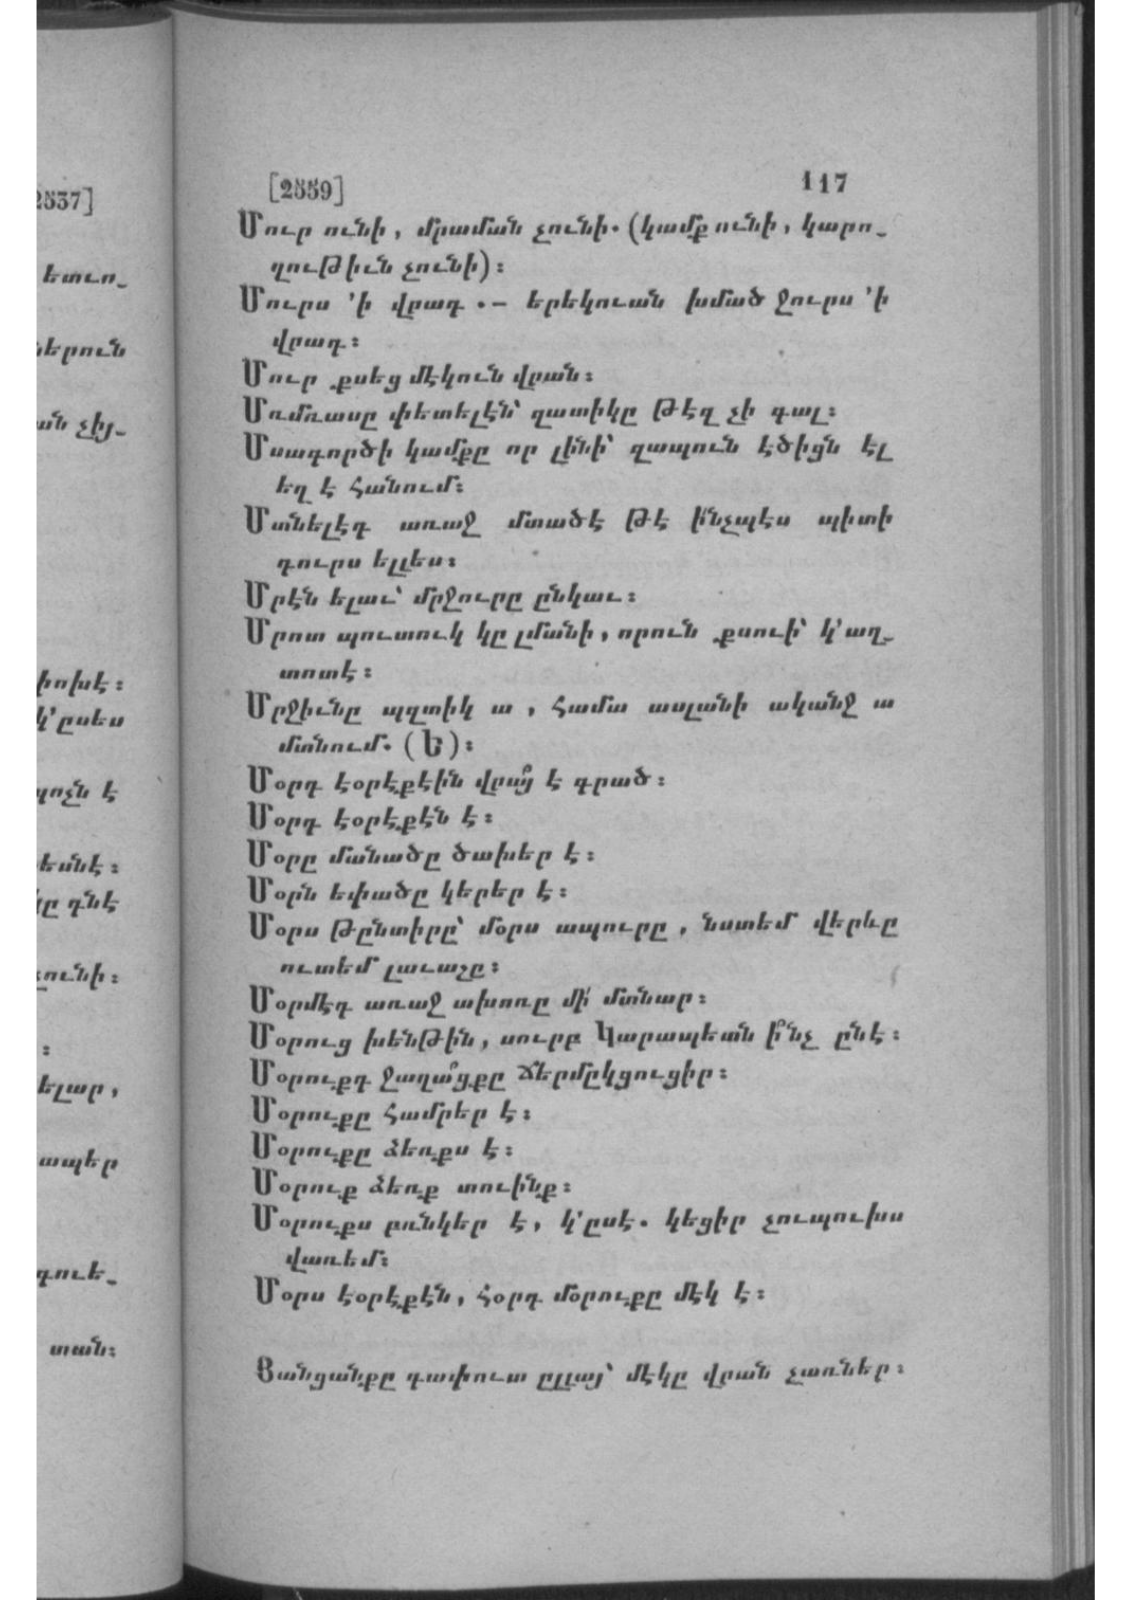 [2559] 117
Մուր ունի, մրաման չունի. (կամք ունի, կարո֊
ղութիւն չունի)։
Մուրս ՚ի վրադ .— երեկուան խմած ջուրս ՚ի
վրադ։
Մուր քսեց մէկուն վրան։
Մռմռասը փետելէն՝ զատիկը թէզ չի գալ։
Մսագործի կամքը որ լինի՝ զապուն էծիցն էլ
եղ է հանում։
Մտնելէդ առաջ մտածէ թէ ի՛նչպէս պիտի
դուրս ելլես։
Մրէն ելաւ՝ մրջուրը ընկաւ։
Մրոտ պուտուկ կը լմանի, որուն քսուի՝ կ՚աղ֊
տոտէ։
Մրջիւնը պզտիկ ա, համա ասլանի ականջ ա
մտնում. (Ե)։
Մօրդ էօրէքէին վրա՞յ է գրած։
Մօրդ էօրէքէն է։
Մօրը մանածը ծախեր է։
Մօրն եփածը կերեր է։
Մօրս թընտիրը՝ մօրս ապուրը, նստեմ վերևը
ուտեմ լաւաշը։
Մօրմէդ առաջ ախոռը մի՛ մտնար։
Մօրուց խենթին, սուրբ Կարապեան ի՞նչ ընէ։
Մօրուքդ ջաղա՞ցքը ճերմըկցուցիր։
Մօրուքը համրեր է։
Մօրուքը ձեռքս է։
Մօրուք ձեռք տուինք։
Մօրուքս բռնկեր է, կ՚ըսէ. կեցիր չուպուխս
վառեմ։
Մօրս էօրէքէն, հօրդ մօրուքը մէկ է։
Յանցանքը գափուտ ըլլայ՝ մէկը վրան չառներ։
2537]
ետւո֊
ներուն
ան չիյ֊
փոխէ։
կ՚ըսես
պոչն է
եմնէ։
կը դնէ
չունի։
։
ելար,
ապեր
գուե֊
տան։